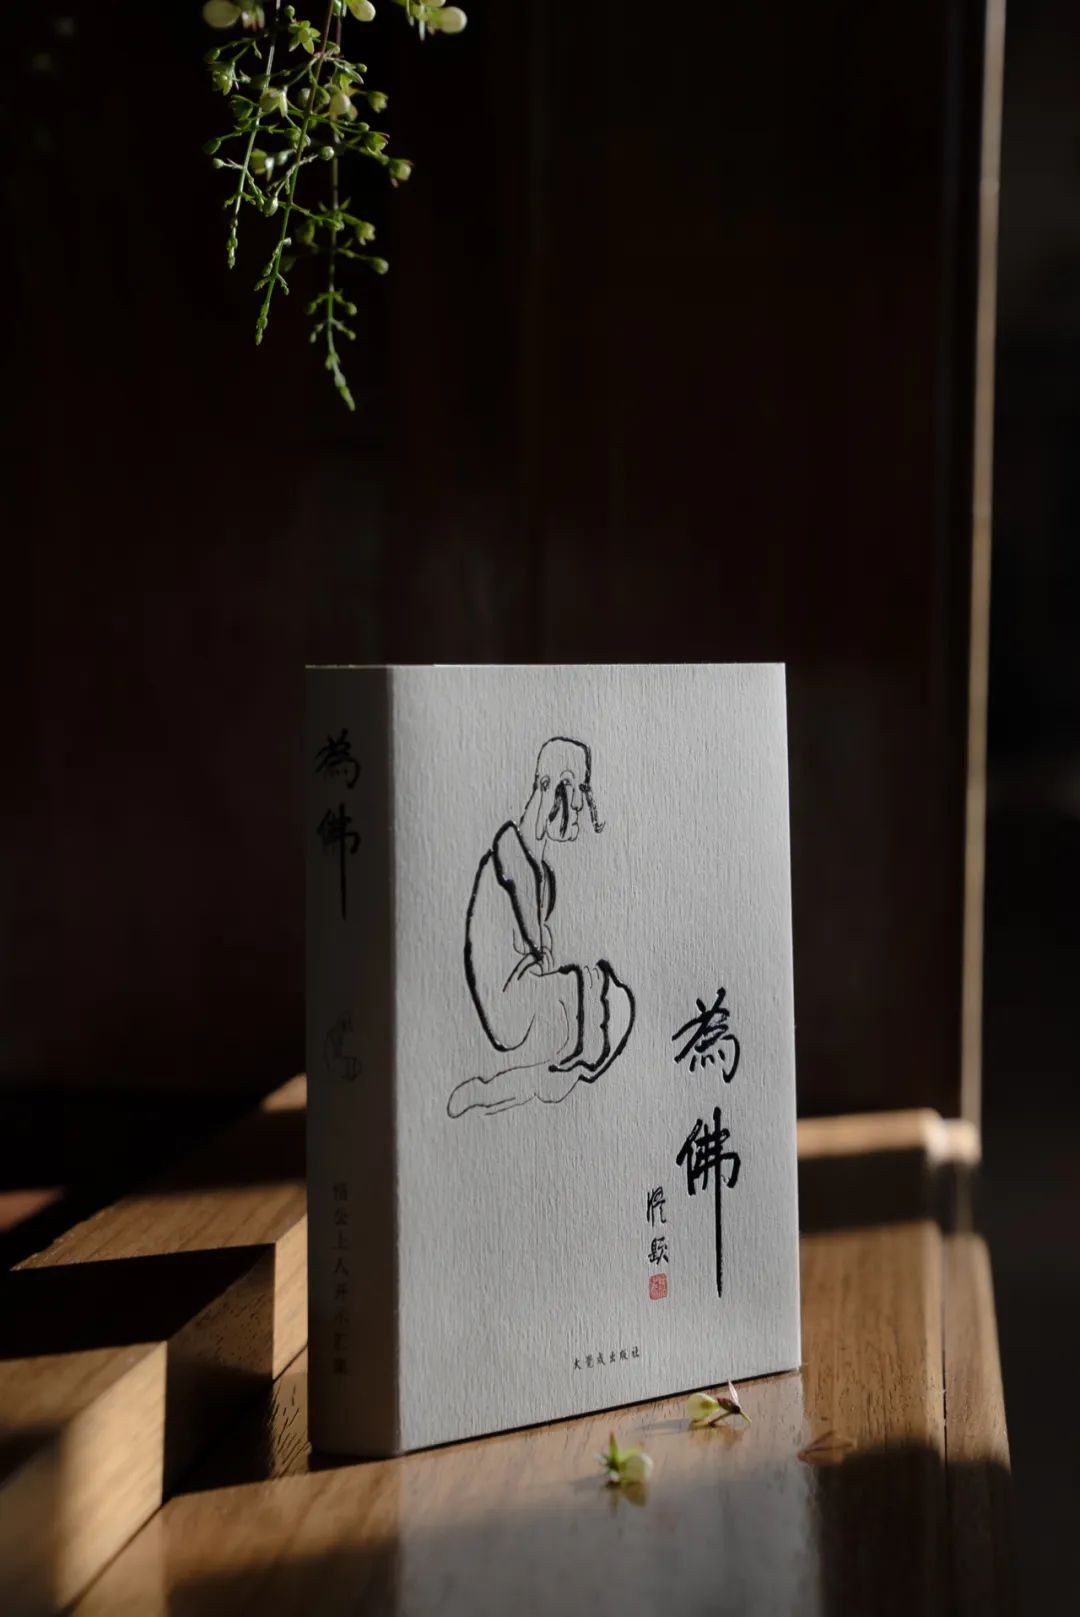 為佛
悟公上人开示汇集
為佛
題
大觉成出版社